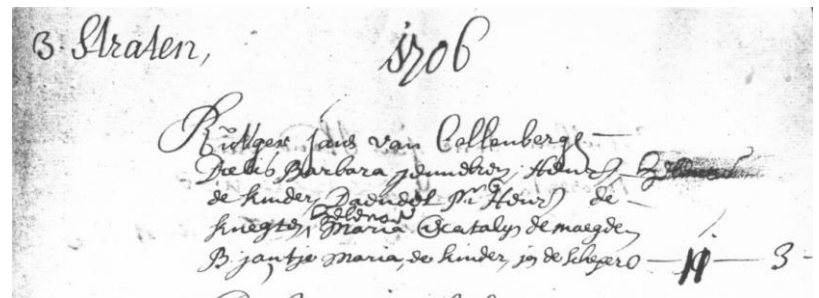 3. Straten, 1706
Rutger Jans van Collenberge
Dielis Barbara Jenneken, Henr
de kinder, Daendel Henr de
knegten, Maria Catalyn de maegde
B Jantje Maria, de kinder, de Schepero — 11 — 3 -